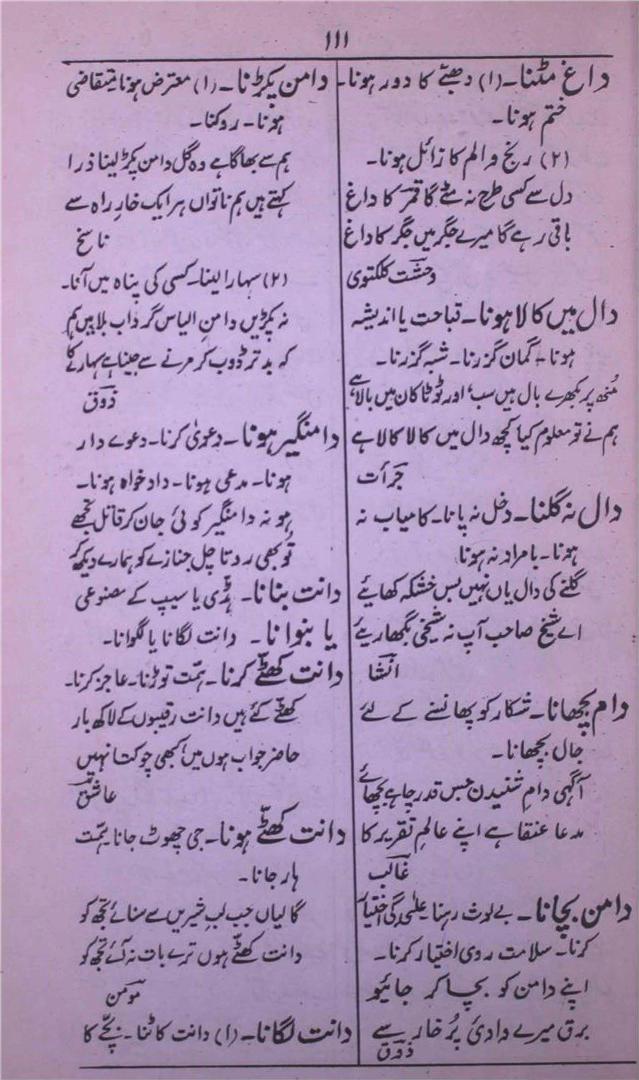 ۱۱۱
داغ مٹنا۔ (۱) دھبّے کا دور ہونا۔
ختم ہونا۔
(۲) رنج و الم کا زائل ہونا۔
دل سے کسی طرح نہ مٹے گا قمر کا داغ
باقی رہے گا میرے جگر میں جگر کا داغ
وحشت کلکتوی
دال میں کالا ہونا۔ قباحت یا اندیشہ
ہونا۔ گمان گزرنا۔ شبہ گزرنا۔
مُنھ پر بکھرے بال ہیں سب، اور ٹوٹا کان میں بالا ہے
ہم نے تو معلوم کیا کچھ دال میں کالا کالا ہے
جرأت
دال نہ گلنا۔ دخل نہ پانا۔ کامیاب نہ
ہونا۔ بامراد نہ ہونا
گلنے کی دال یاں نہیں بس خشکہ کھایئے
اے شیخ صاحب آپ نہ شیخی بگھاریئے
انشا
دام بچھانا۔ شکار کو پھانسنے کے لئے
جال بچھانا۔
آگہی دامِ شنیدن جس قدر چاہے بچھائے
مدعا عنقا ہے اپنے عالمِ تقریر کا
غالب
دامن بچانا۔ بے لوث رہنا۔ علٰحدگی اختیار
کرنا۔ سلامت روی اختیار کرنا۔
اپنے دامن کو بچا کر جائیو
برق میرے وادیٔ پُر خار سے
ذوق
دامن پکڑنا۔ (۱) معترض ہونا۔ متقاضی
ہونا۔ روکنا۔
ہم سے بھاگا ہے وہ گل دامن پکڑ لینا ذرا
کہتے ہیں ہم ناتواں ہر ایک خارِ راہ سے
ناسخ
(۲) سہارا لینا۔ کسی کی پناہ میں آنا۔
نہ پکڑیں دامنِ الیاس گردابِ بلا میں ہم
کہ بدتر ڈوب کر مرنے سے جینا ہے سہارے کا
ذوق
دامنگیر ہونا۔ دعویٰ کرنا۔ دعوے دار
ہونا۔ مدعی ہونا۔ داد خواہ ہونا۔
ہو نہ دامنگیر کوئی جان کر قاتل تجھے
تو بھی روتا چل جنازے کو ہمارے دیکھ کر
دانت بنانا۔ ہڈی یا سیپ کے مصنوعی
یا بنوانا۔ دانت لگانا یا لگوانا۔
دانت کھٹّے کرنا۔ ہمّت توڑنا۔ عاجز کرنا۔
کھٹّے کئے ہیں دانت رقیبوں کے لاکھ بار
حاضر جواب ہوں میں کبھی چوکتا نہیں
عاشق
دانت کھٹّے ہونا۔ جی چھوٹ جانا۔ ہمّت
ہار جانا۔
گالیاں جب لبِ شیریں سے سنائے تجھ کو
دانت کھٹّے ہوں ترے بات نہ آئے تجھ کو
مومن
دانت لگانا۔ (۱) دانت کاٹنا۔ بچّے کا